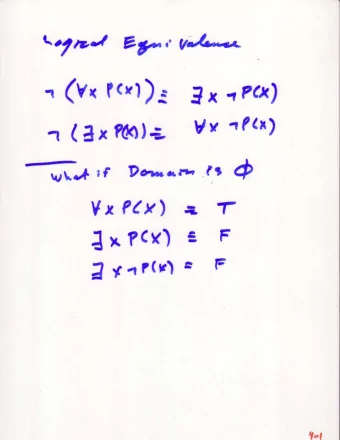 Logical Equivalence
¬ (∀x P(x)) ≡ ∃x ¬P(x)
¬ (∃x P(x)) ≡ ∀x ¬P(x)
What if Domain is Φ
∀x P(x) ≡ T
∃x P(x) ≡ F
∃x ¬P(x) ≡ F
4-1